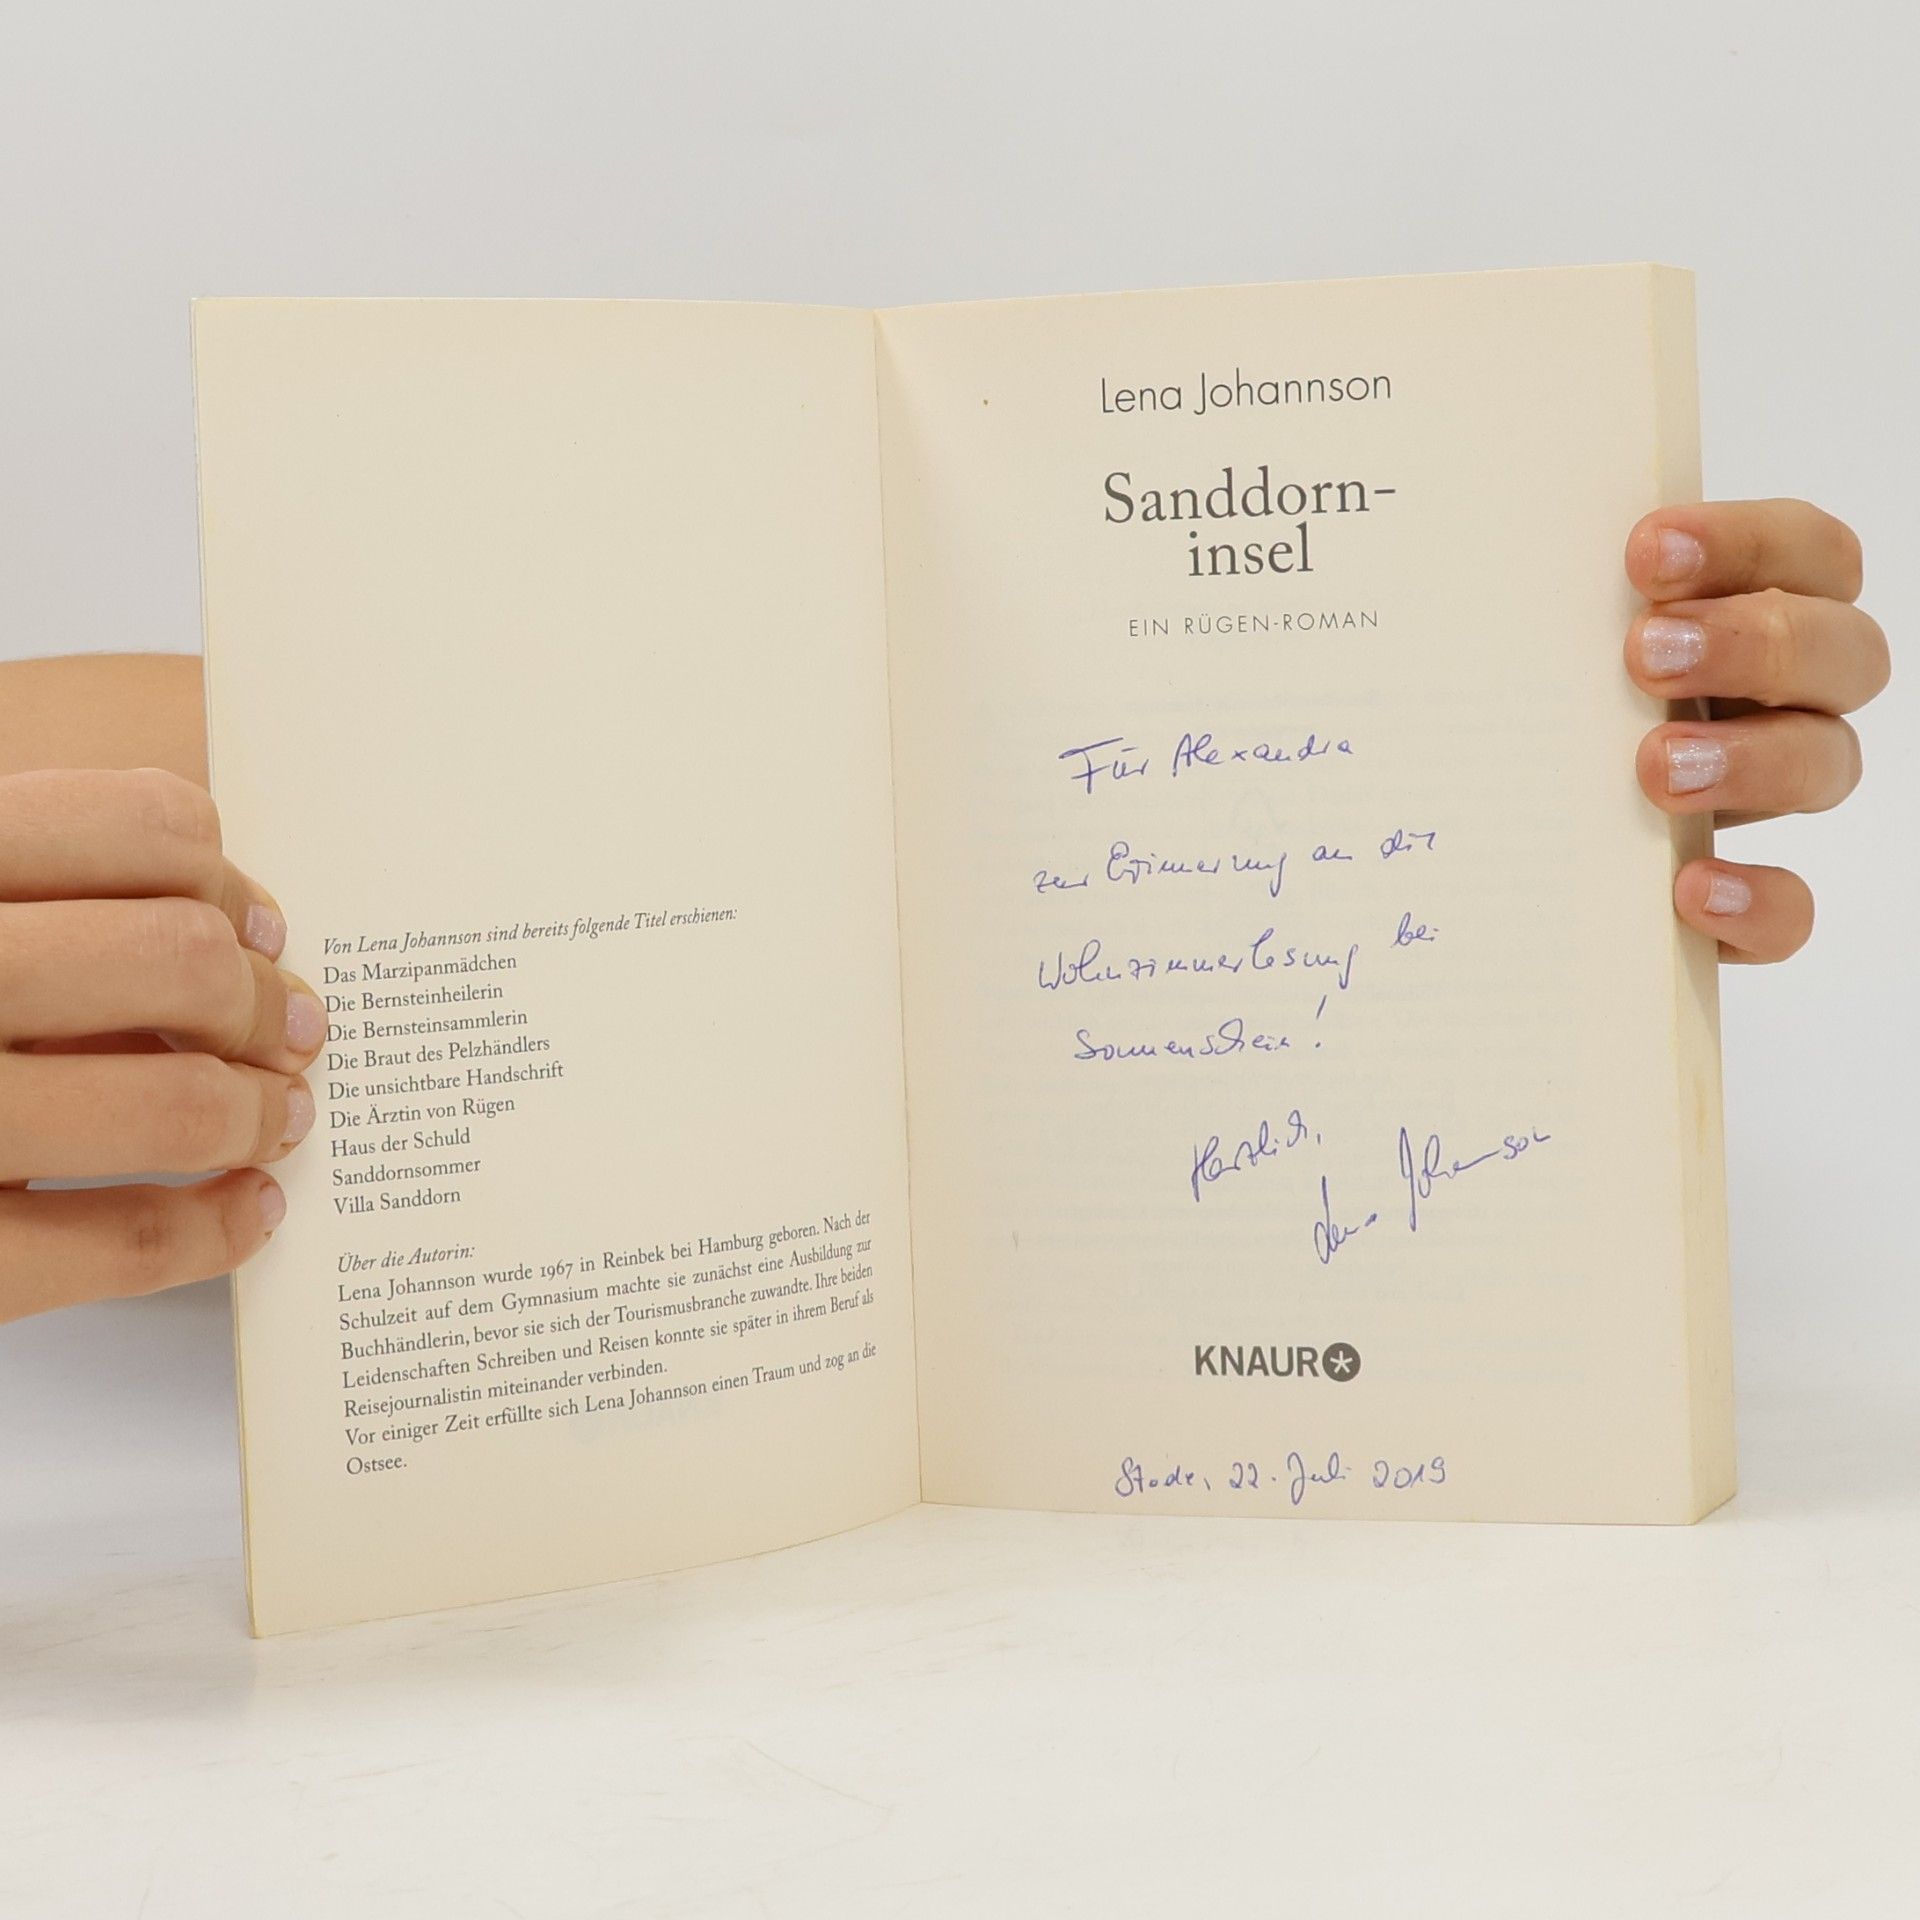 Von Lena Johannson sind bereits folgende Titel erschienen:
Das Marzipanmädchen
Die Bernsteinheilerin
Die Bernsteinsammlerin
Die Braut des Pelzhändlers
Die unsichtbare Handschrift
Die Ärztin von Rügen
Haus der Schuld
Sanddornsommer
Villa Sanddorn
Über die Autorin:
Lena Johannson wurde 1967 in Reinbek bei Hamburg geboren. Nach der
Schulzeit auf dem Gymnasium machte sie zunächst eine Ausbildung zur
Buchhändlerin, bevor sie sich der Tourismusbranche zuwandte. Ihre beiden
Leidenschaften Schreiben und Reisen konnte sie später in ihrem Beruf als
Reisejournalistin miteinander verbinden.
Vor einiger Zeit erfüllte sich Lena Johannson einen Traum und zog an die
Ostsee.
Lena Johannson
Sanddorn-
insel
EIN RÜGEN-ROMAN
Für Alexandra
zur Erinnerung an die
Wohnzimmerlesung bei
Sonnenschein!
Herzlich,
Lena Johannson
KNAUR
Stade, 22. Juli 2019